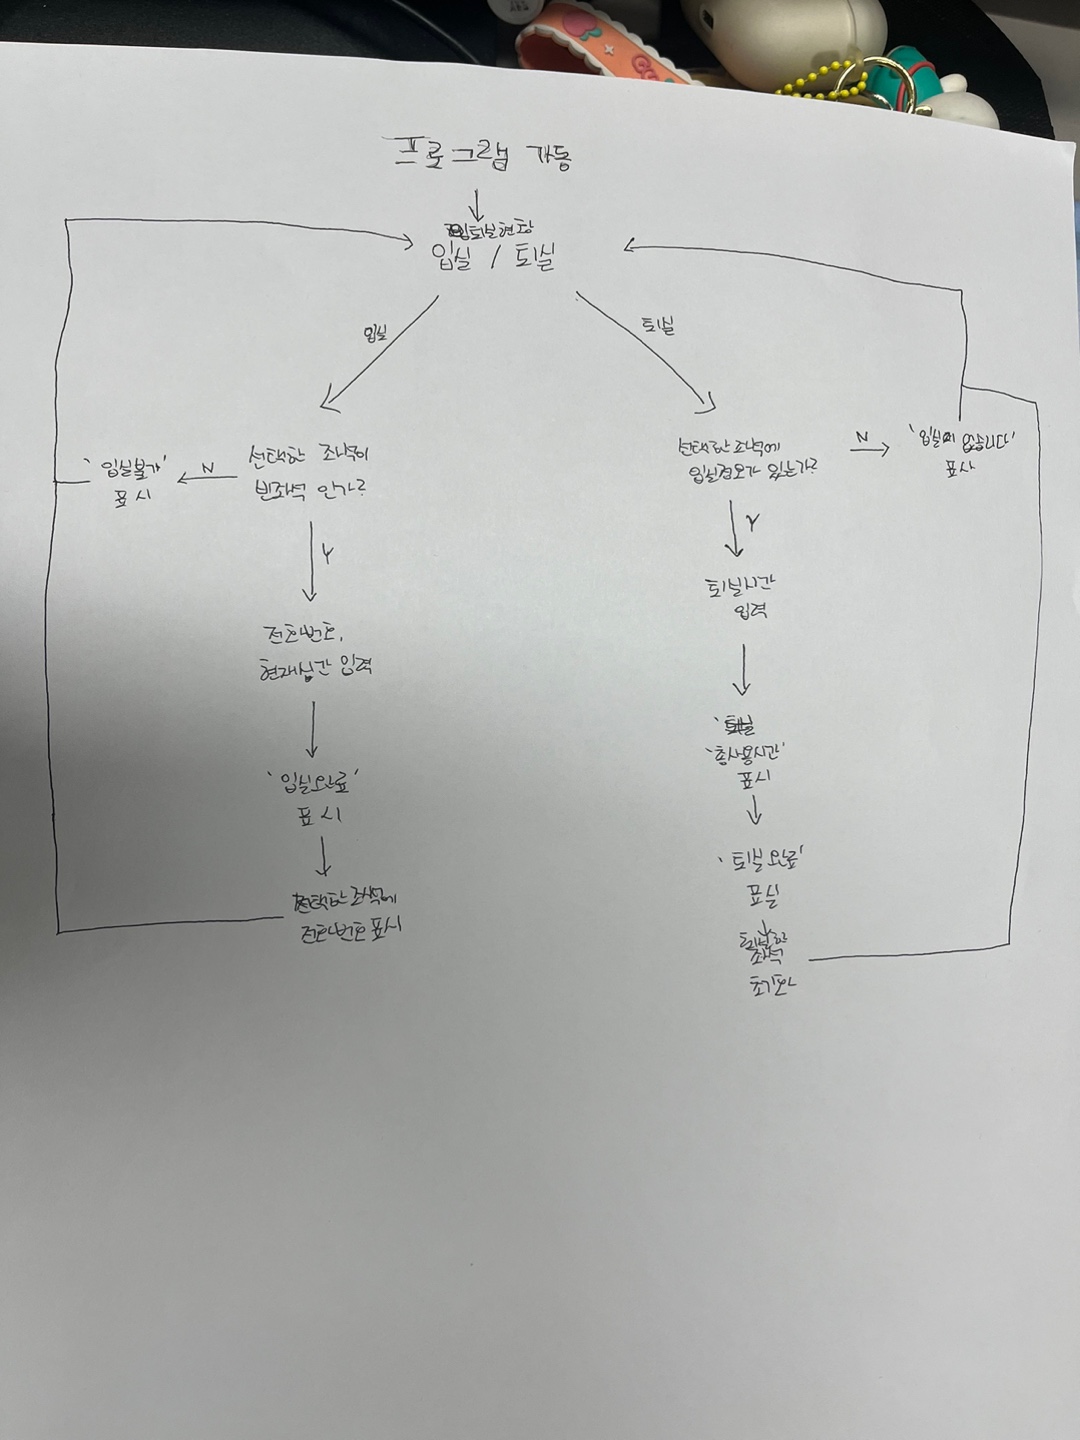 프로그램 가동
입퇴실현황
입실 / 퇴실
입실
퇴실
선택한 좌석이
빈좌석 인가?
N
'입실불가'
표시
Y
전화번호,
현재시간 입력
'입실완료'
표시
선택한 좌석에
전화번호 표시
선택한 좌석에
입실정보가 있는가?
N
없습니다'
표시
Y
퇴실시간
입력
'총사용시간'
표시
'퇴실완료'
표실
퇴실한
좌석
초기화